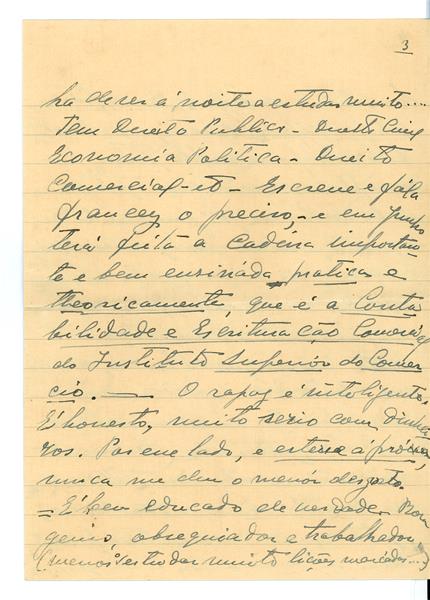 3
ha de ser á noite a estudar muito....
Tem Direito Publico - Direito Civil
Economia Politica - Direito
Comercial - et - Escreve e fála
francez o preciso, - e em
terá feita a cadeira importan-
te e bem ensinada pratica e
theoricamente, que é a Conta
bilidade e Escrituração Comercial
do Instituto Superior do Comer
cio. — O rapaz é intelligente,
É honesto, muito serio com dinhei
ros. Por esse lado, e esteve á próva,
nunca me deu o menór desgosto.
= É bem educado de verdade. Bom
genio, obsequiador e trabalhador
(menos estudar muito lições marcadas...)